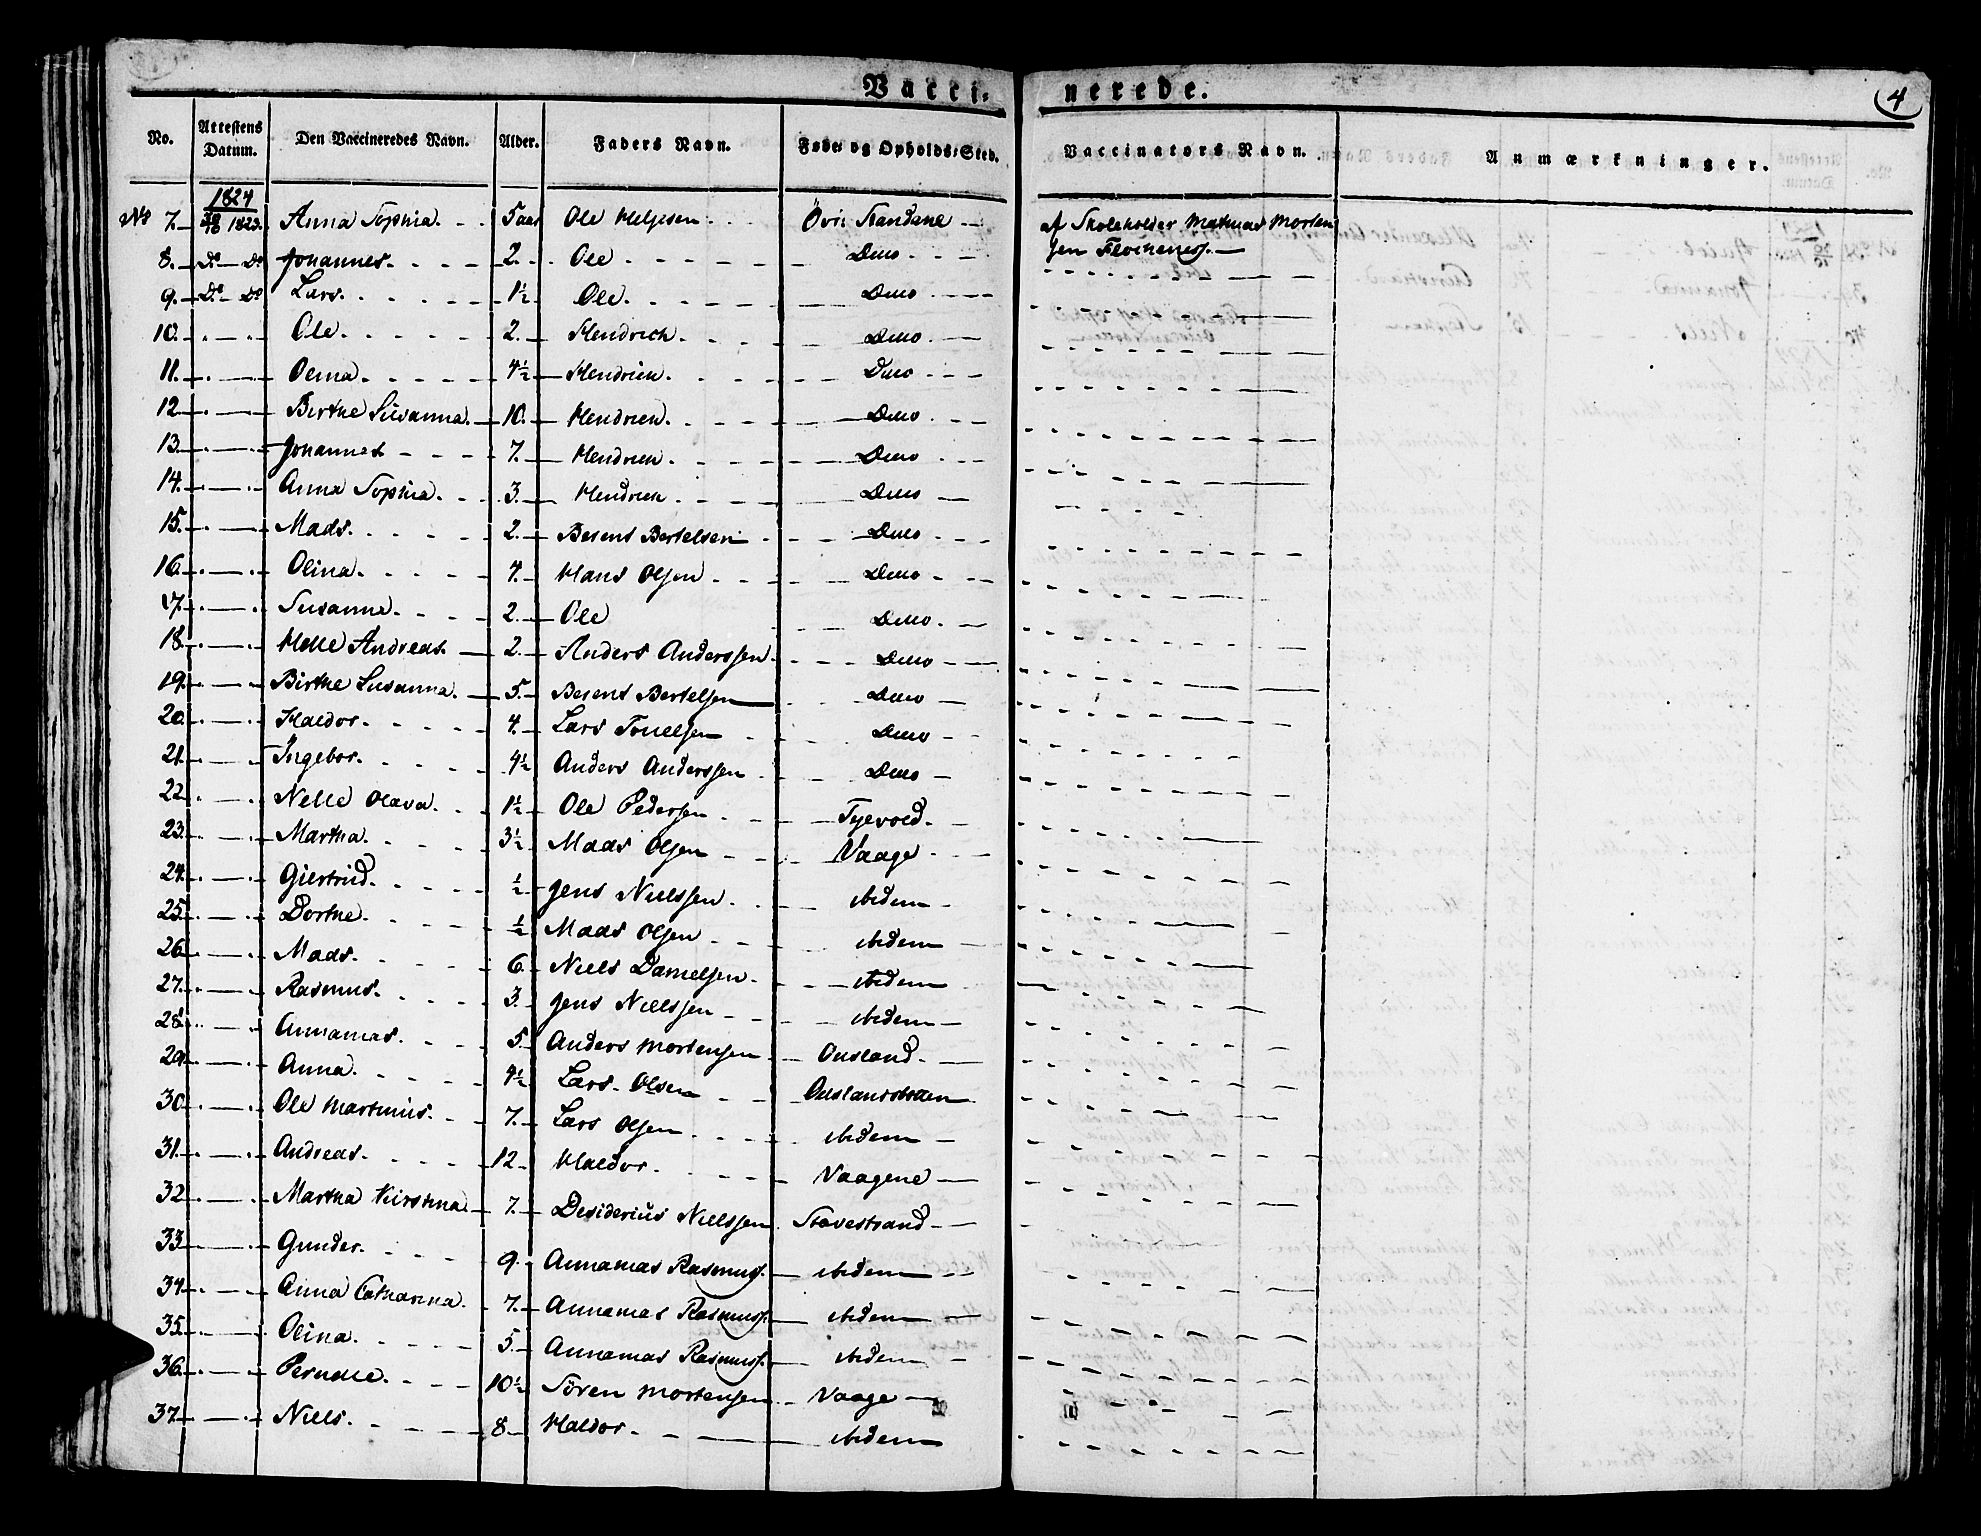 Vacci-
nerede.
4
No.
Attestens Datum.
Den Vaccineredes Navn.
Alder.
Faders Navn.
Føde og Opholds-Sted.
Vaccinators Navn.
Anmærkninger.
1824
No 7. 1823. Anna Sophia. 5 aar Ole Helgesen Övre Standane af Skoleholder Mathias Morten
8. Do Do Johannes. 2. Ole Ditto sen
9. Do Do Lars. 1½ Ole. Ditto
10. Ole. 2. Hendrich. Ditto
11. Oema. 4½ Hendrich. Ditto
12. Birthe Susanna. 10. Hendrich. Ditto
13. Johannes 7. Hendrich. Ditto
14. Anna Sophia. 3. Hendrich Ditto
15. Mads. 2. Berent Bertelsen Ditto
16. Olina. 4. Hans Olsen Ditto
17. Susanne. 2. Ole Ditto
18. Helle Andreas. 2. Anders Anderssen. Ditto
19. Birthe Susanna. 5. Berent Bertelsen Ditto
20. Haldor. 4. Lars Ditto
21. Ingebor. 4½ Anders Anderssen Ditto
22. Nelle Olava. 1½ Ole Pedersen Tyevold.
23. Martha. 3½ Mads Olsen Vaage
24. Giertrud. ½ Jens Nielssen ibidem
25. Dorthe. ½ Mads Olsen ibidem
26. Mads. 6. Niels Danielsen. ibidem
27. Rasmus. 3. Jens Nielssen ibidem
28. Annanias. 5. Anders Mortensen Ousland.
29. Anna. 4½ Lars Olsen Ouslandstraen
30. Ole Martinus. 7. Lars Olsen ibidem
31. Andreas. 12. Haldor. Vaagene
32. Martha Kirstina. 7. Desiderius Nielssen Stavestrand
33. Gunder. 9. Annanias Rasmuss. ibidem
34. Anna Catharina. 7. Annanias Rasmuss. ibidem
35. Olina. 5. Annanias Rasmuss. ibidem
36. Pernelle. 10½ Sören Mortensen Vaage
37. Niels. 8 Haldor. ibidem